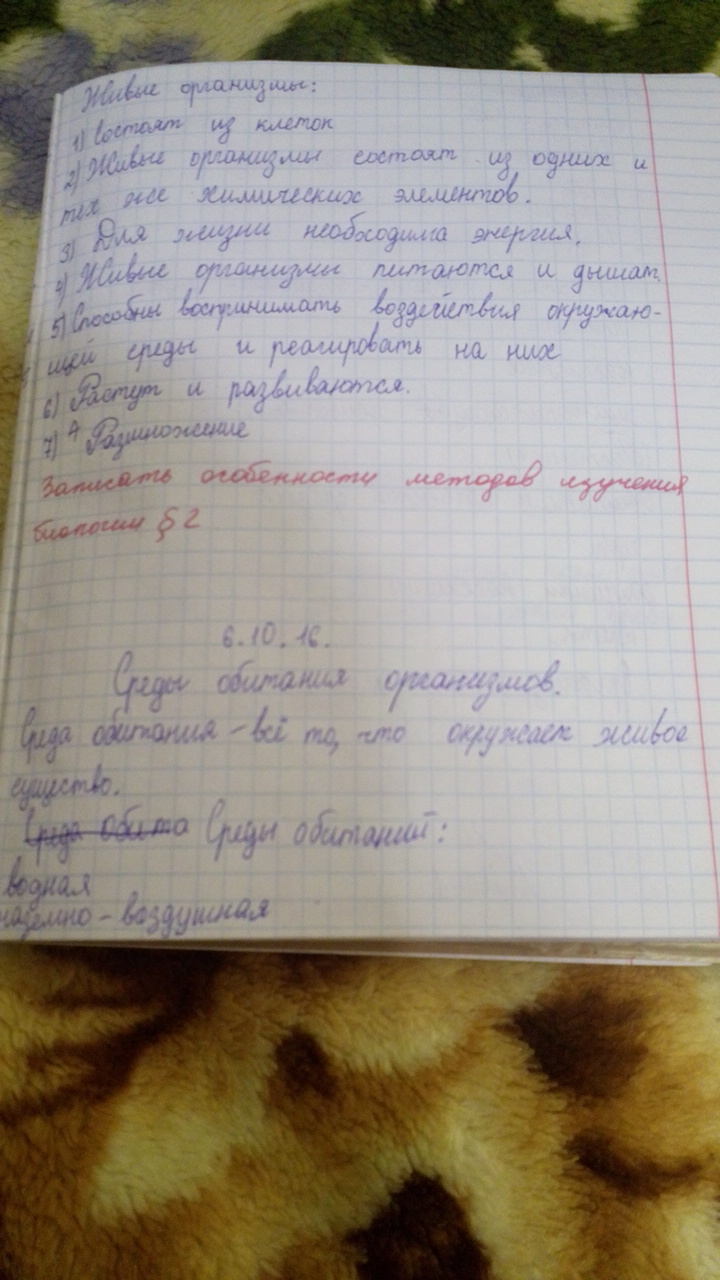 Живые организмы:
1) Состоят из клеток
2) Живые организмы состоят из одних и
тех же химических элементов.
3) Для жизни необходима энергия.
4) Живые организмы питаются и дышат.
5) Способны воспринимать воздействия окружаю-
щей среды и реагировать на них
6) Растут и развиваются.
7) Размножение
Записать особенности методов изучения
биологии § 2
6.10.16.
Среды обитания организмов.
Среда обитания - всё то, что окружает живое
существо.
Среда обита Среды обитаний:
водная
наземно - воздушная